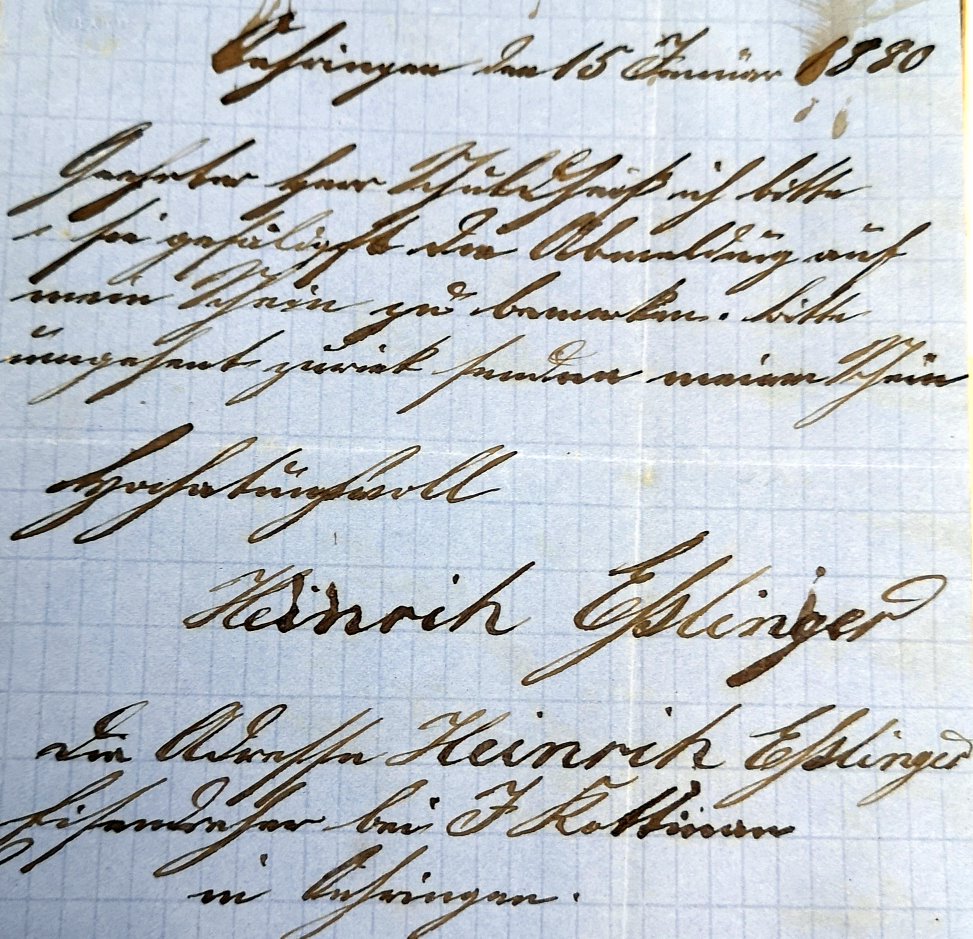 Oehringen den 15 Januar 1880
Geehrter Herr Schuldheiß ich bitte
sie gefäligst die Abmeldung auf
mein Schein zu bemerken. bitte
umgehent zuriek senden meinen Schein
Hochatungsvoll
Heinrich Eßlinger
die Adresse Heinrich Eßlinger
Eisendreher bei J Kottman
in Oehringen.